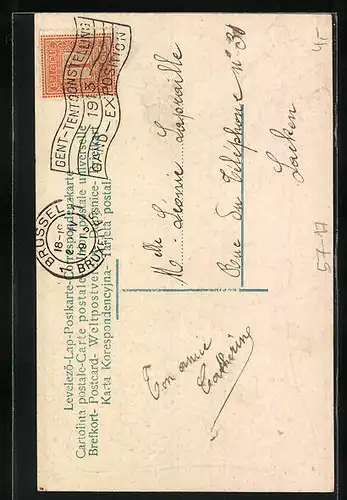 GENT-TENTOONSTELLING
1913
GAND-EXPOSITION
BRUSSEL
BRUXELLES
Levelező-Lap-Postkarte-Correspondenzkarte
Cartolina postale-Carte postale
Brefkort-Postcard-Weltpostverein
Karta Korespondencyjna-Tarjeta postal
Melle Léonie Lapraille
Rue du Téléphone n° 30
Laeken
Ton amie
Catherine
57-17